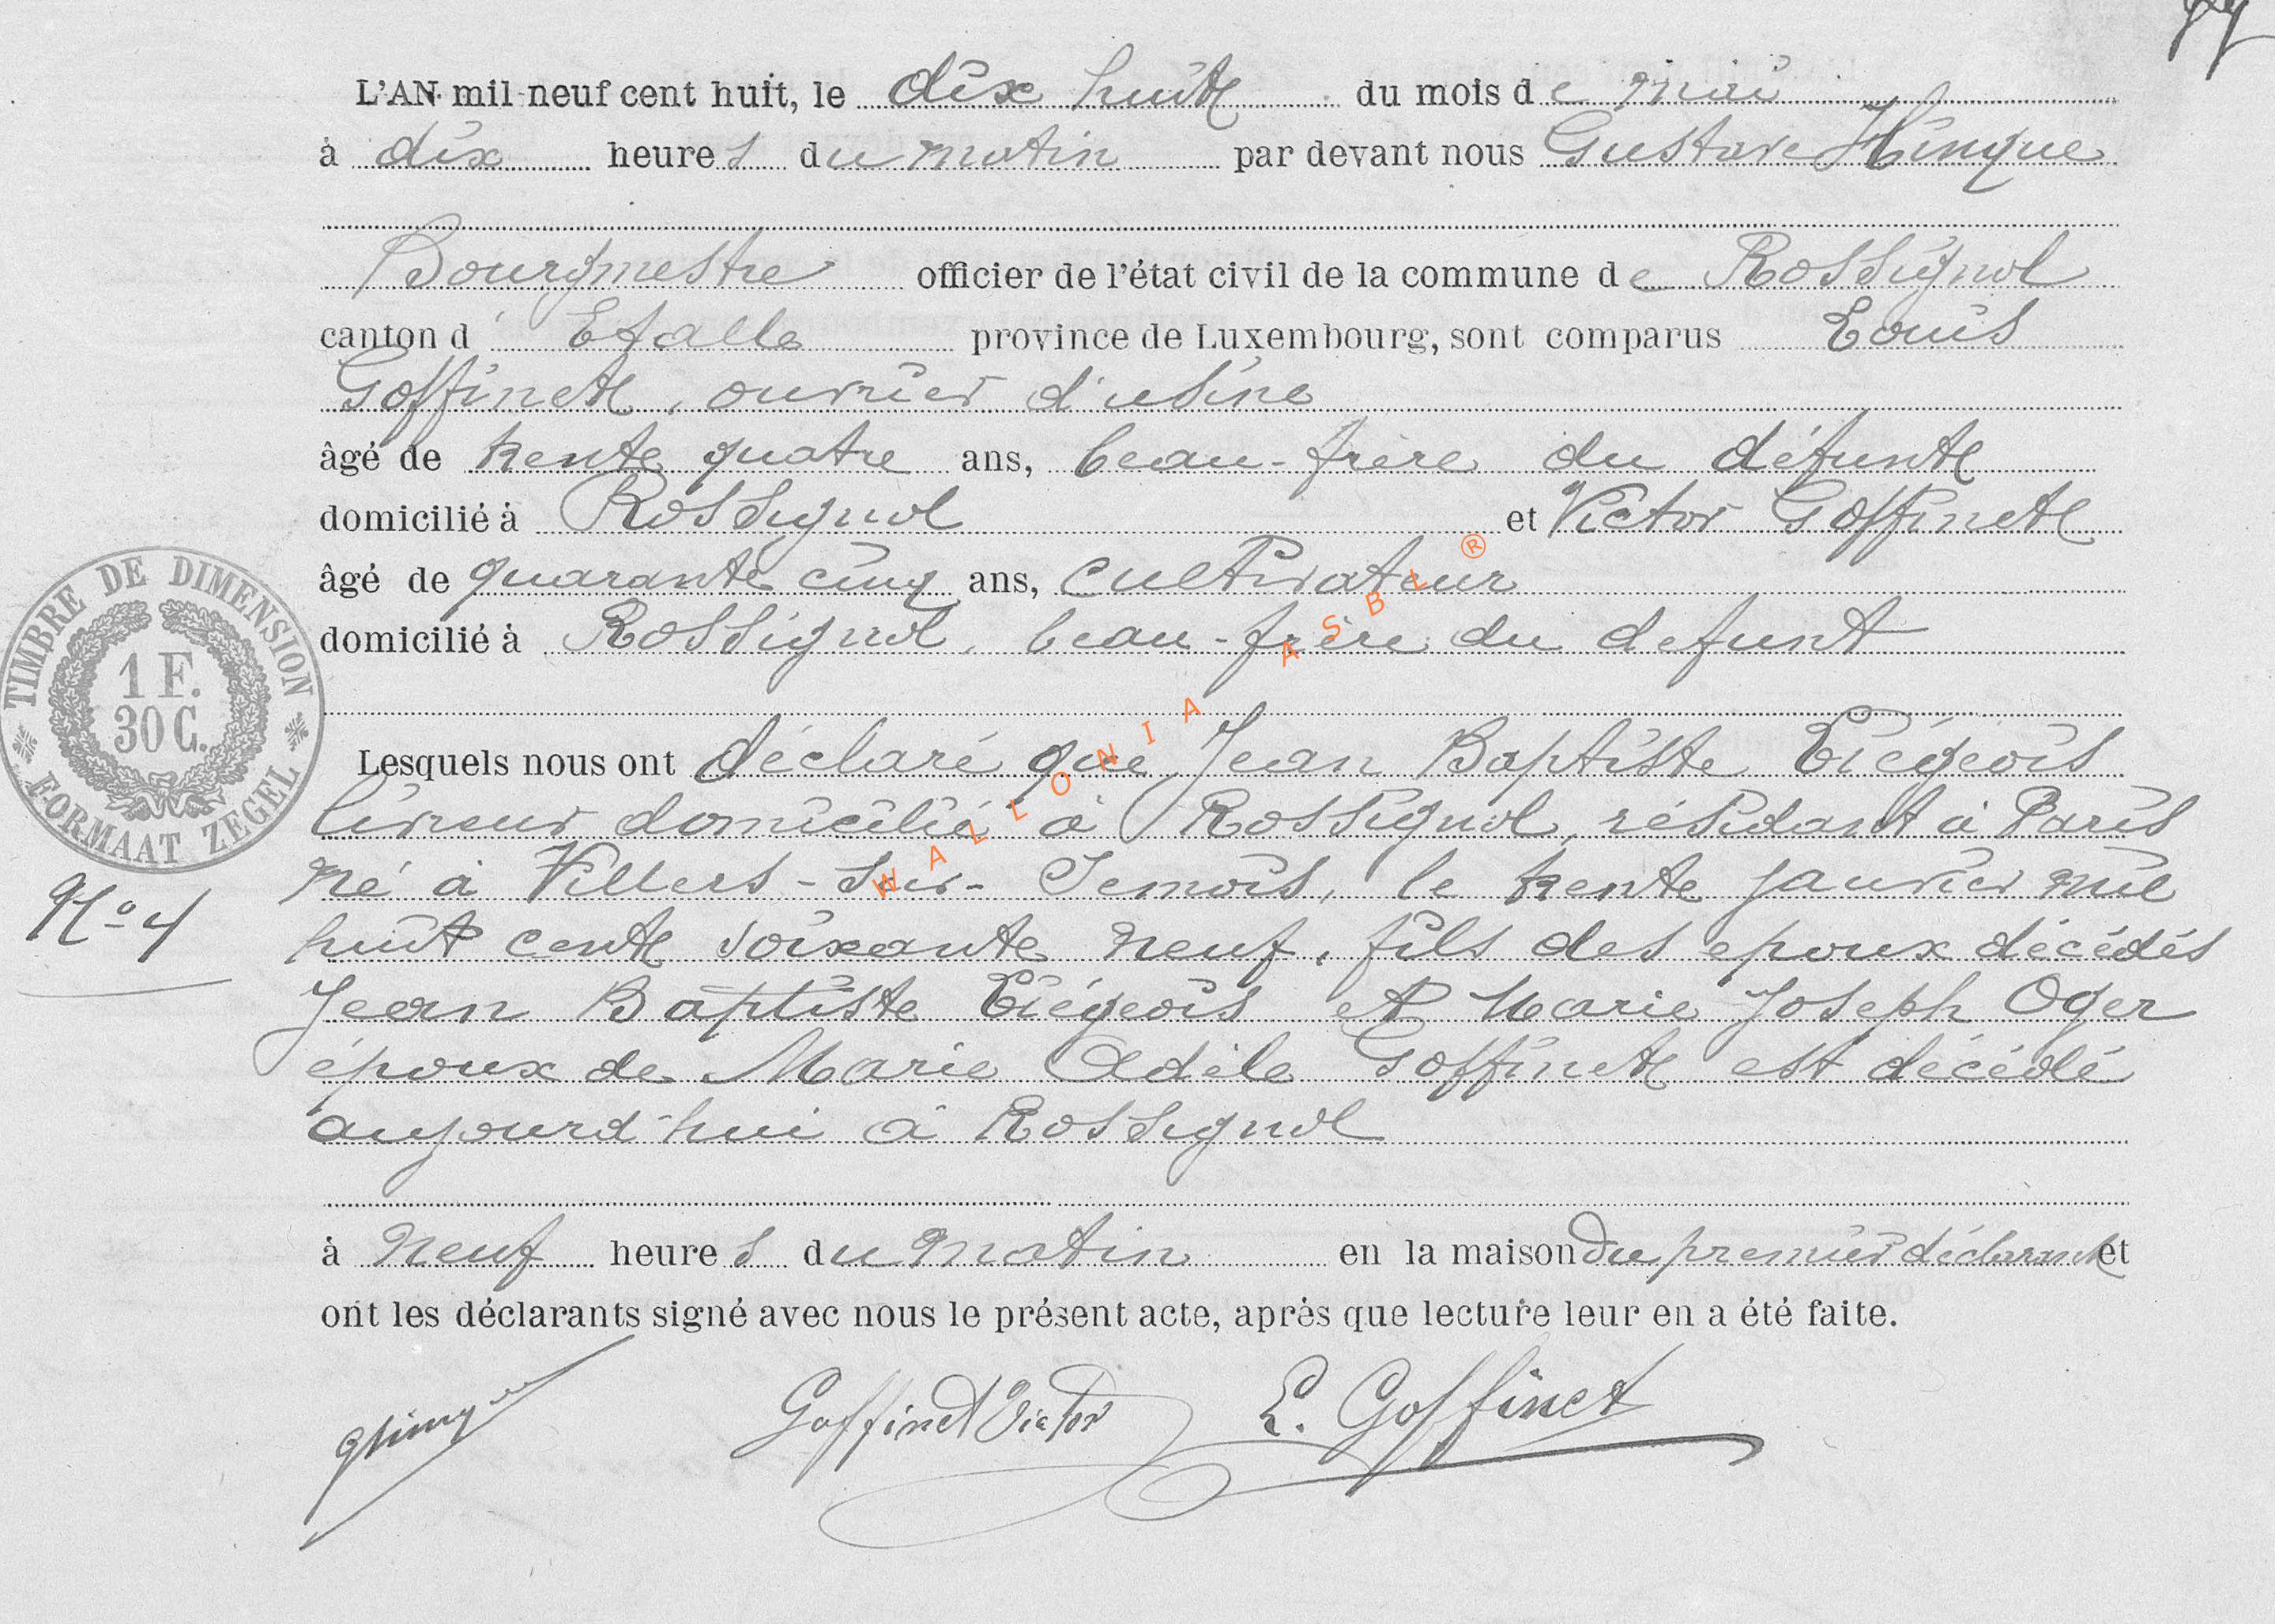 L'AN mil neuf cent huit, le dix huit du mois de mai
à dix heures du matin par devant nous Gustave Hinque
Bourgmestre officier de l'état civil de la commune de Rossignol
canton d'Etalle province de Luxembourg, sont comparus Louis
Goffinet, ouvrier d'usine
âgé de trente quatre ans, beau-frère du défunt
domicilié à Rossignol et Victor Goffinet
âgé de quarante cinq ans, cultivateur
domicilié à Rossignol, beau-frère du defunt
TIMBRE DE DIMENSION
1 F.
30 C.
FORMAAT ZEGEL
Lesquels nous ont déclaré que Jean Baptiste Liégeois
livreur domicilié à Rossignol, résidant à Paris
né à Villers-sur-Semois, le trente janvier mil
N° 4
huit cent soixante neuf, fils des epoux décédés
Jean Baptiste Liégeois et Marie Joseph Oger
époux de Marie Adèle Goffinet est décédé
aujourd'hui à Rossignol
à neuf heures du matin en la maison du premier déclarant et
ont les déclarants signé avec nous le présent acte, après que lecture leur en a été faite.
Goffinet Victor L. Goffinet
WALLONIA ASBL ®